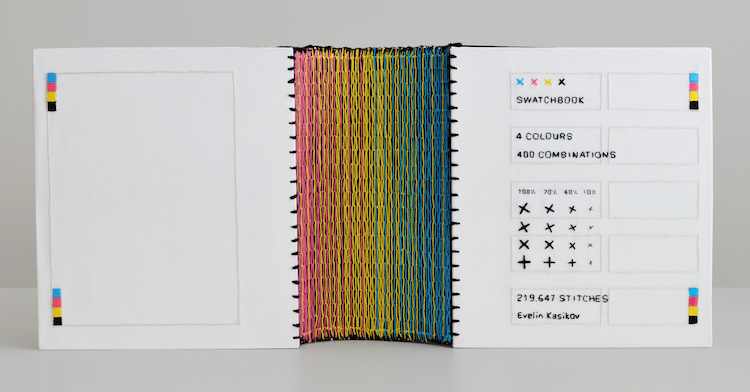 SWATCHBOOK
4 COLOURS
400 COMBINATIONS
100% 70% 40% 10%
219,647 STITCHES
Evelin Kasikov